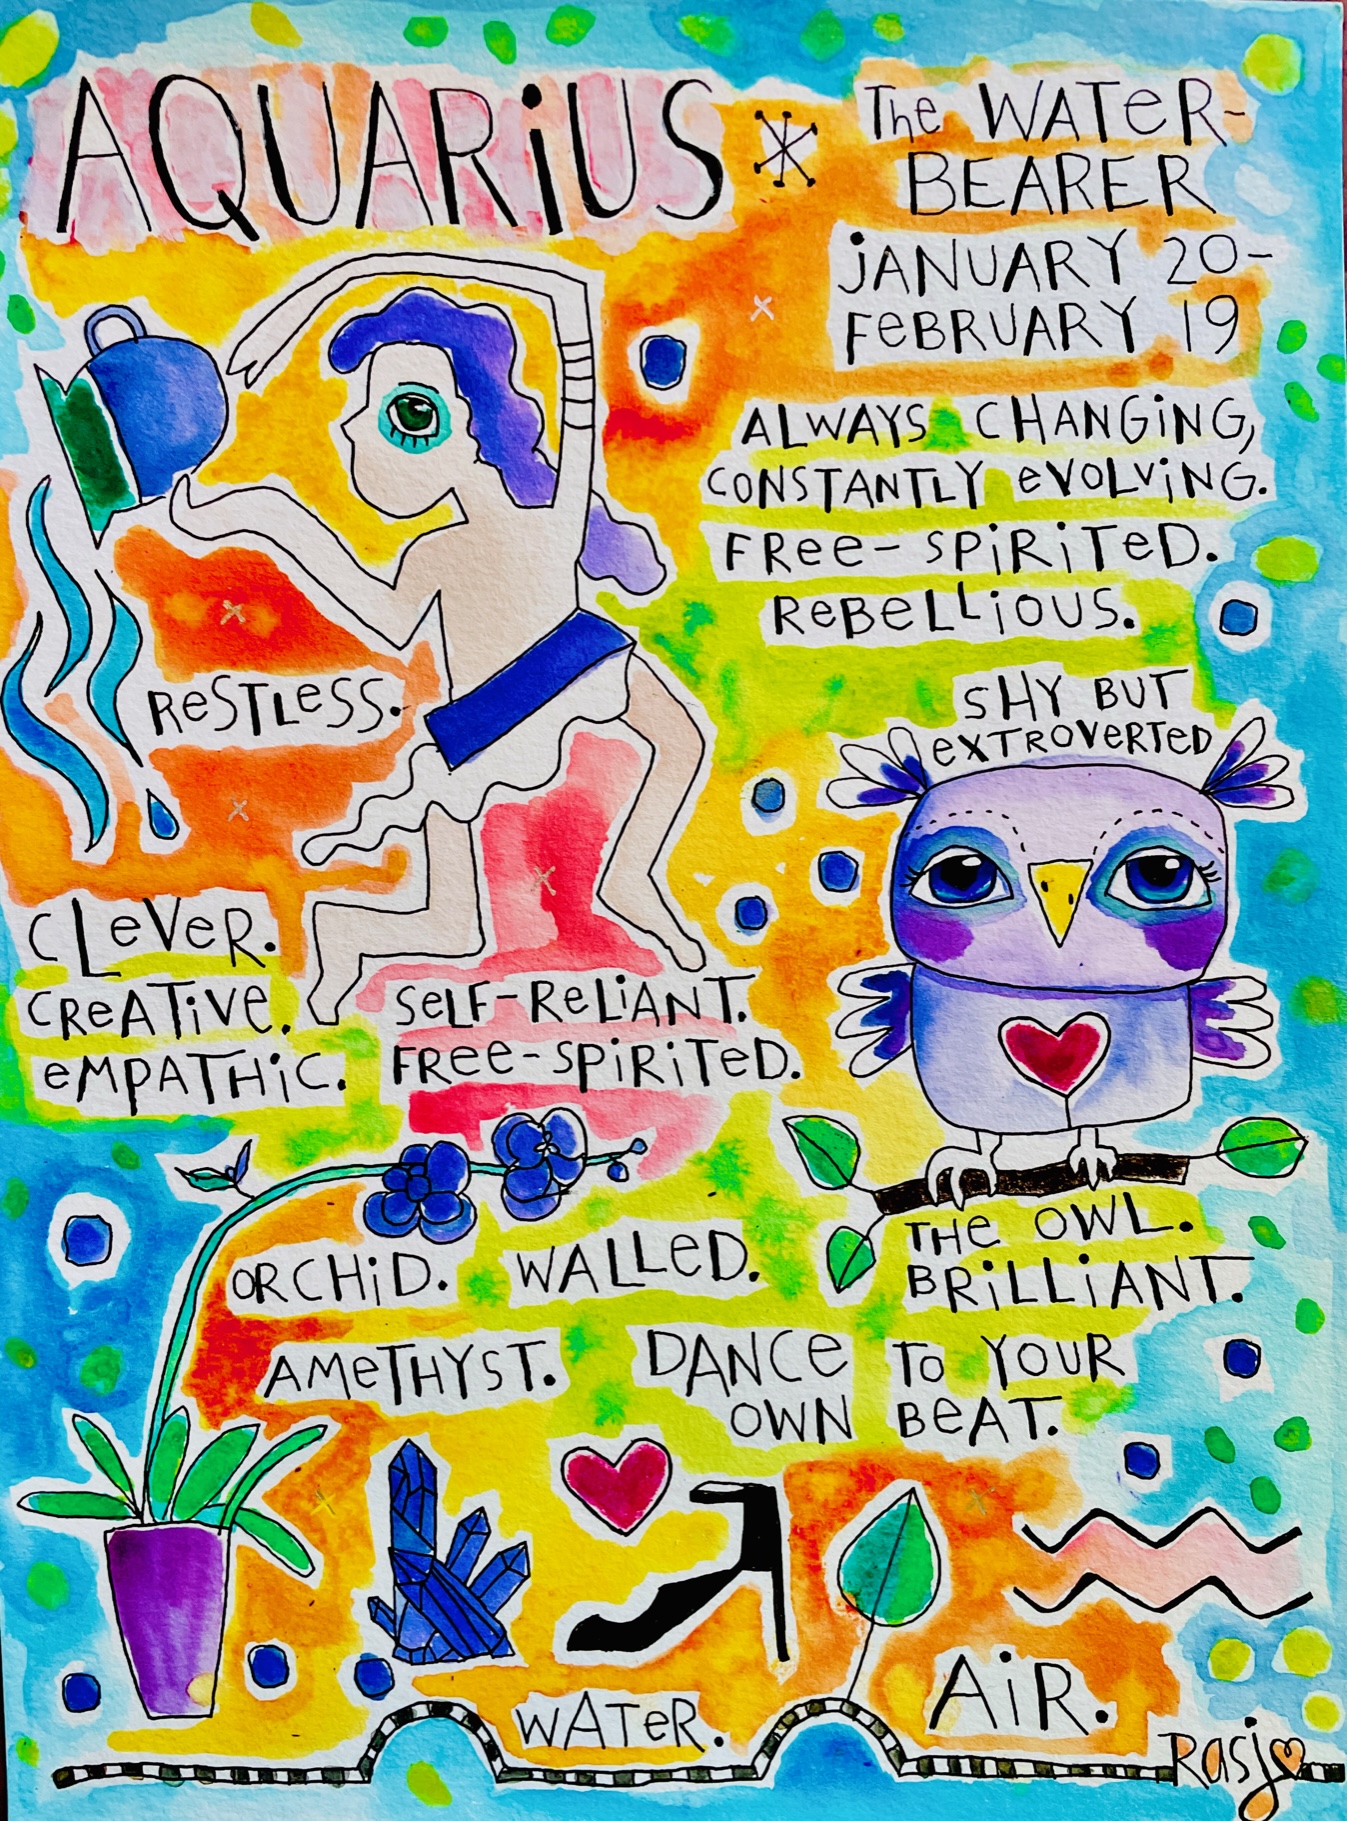 AQUARiUS
The WATeR-
BEARER
jANUARY 20-
FeBRUARY 19
ALWAYS CHANGiNG,
CONSTANTLY eVOLViNG.
FRee-SPiRiTeD.
ReBeLLiOUS.
SHY BUT
eXTROVeRTeD
ReSTLeSS.
CLeVeR.
CReATiVe.
eMPATHiC.
SeLF-ReLiANT.
FRee-SPiRiTeD.
ORCHiD. WALLeD.
THe OWL.
BRiLLiANT.
AMeTHYST.
DANCe TO YOUR
OWN BeAT.
WATeR.
AiR.
Rasj